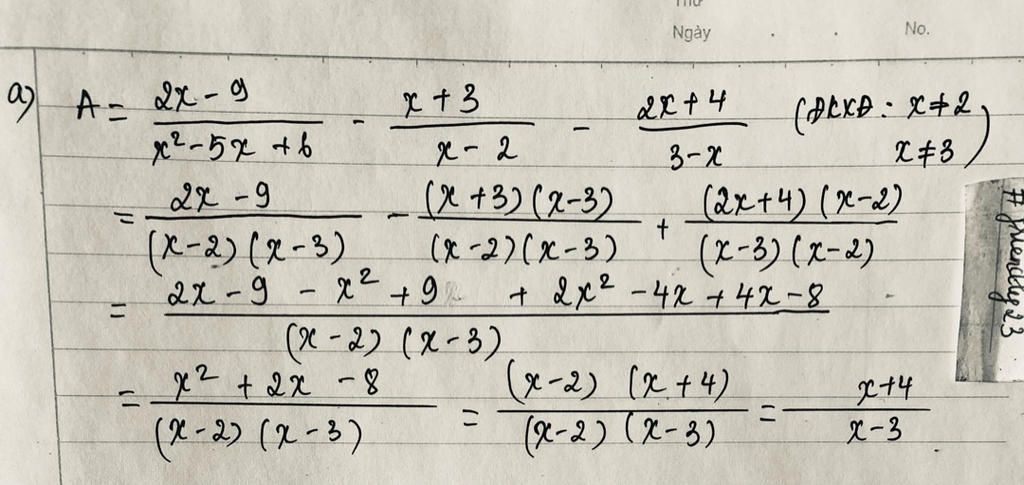 Thứ
Ngày . . No.
a) A = \frac{2x - 9}{x² - 5x + 6} - \frac{x + 3}{x - 2} - \frac{2x + 4}{3 - x} (ĐKXĐ: x ≠ 2, x ≠ 3)
= \frac{2x - 9}{(x - 2)(x - 3)} - \frac{(x + 3)(x - 3)}{(x - 2)(x - 3)} + \frac{(2x + 4)(x - 2)}{(x - 3)(x - 2)}
= \frac{2x - 9 - x² + 9 + 2x² - 4x + 4x - 8}{(x - 2)(x - 3)}
= \frac{x² + 2x - 8}{(x - 2)(x - 3)} = \frac{(x - 2)(x + 4)}{(x - 2)(x - 3)} = \frac{x + 4}{x - 3}